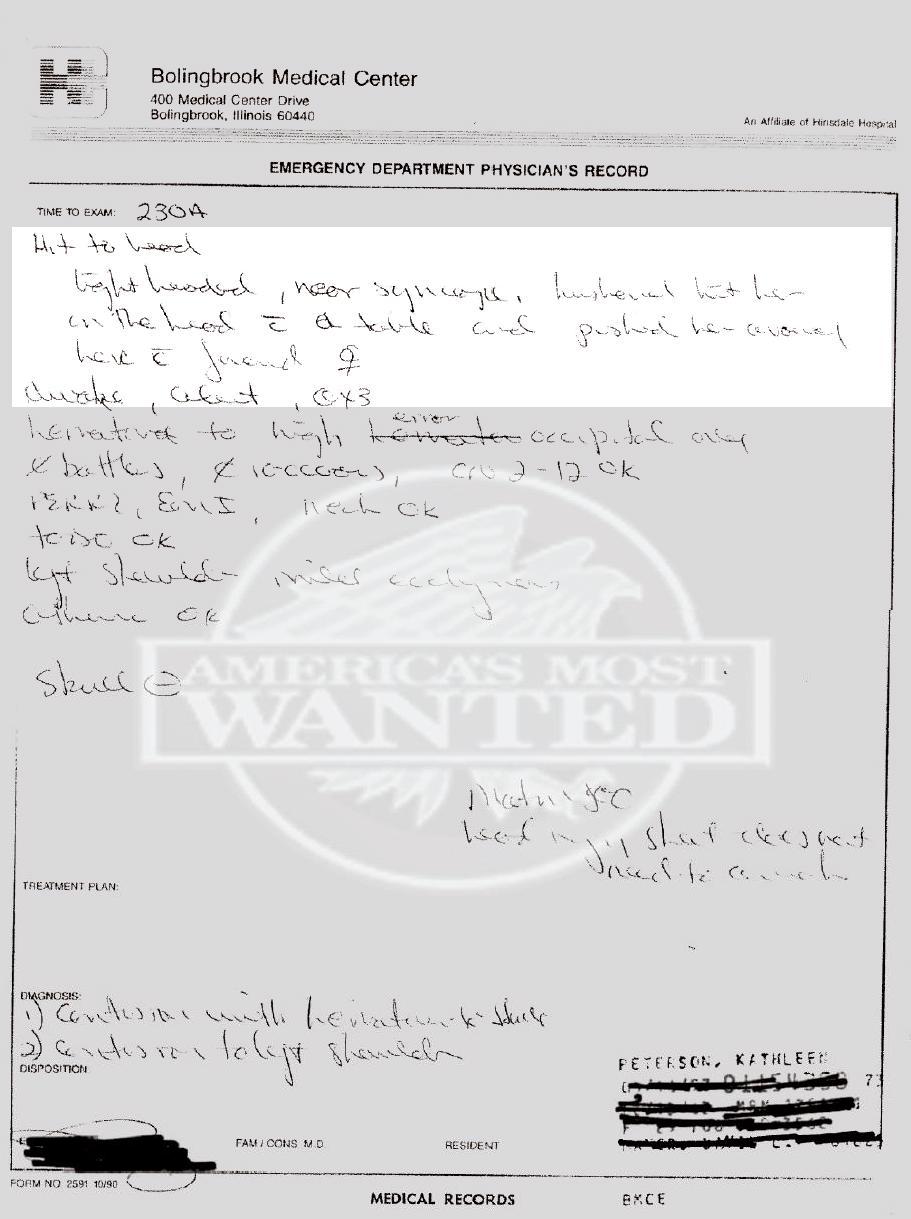 Bolingbrook Medical Center
400 Medical Center Drive
Bolingbrook, Illinois 60440
An Affiliate of Hinsdale Hospital
EMERGENCY DEPARTMENT PHYSICIAN'S RECORD
TIME TO EXAM: 230A
Hit to head
lightheaded, near syncope. husband hit her
in the head c̄ a table and pushed her around
here c̄ friend ♀
awake, alert, OX3
hematoma to high error occipital area
battles, raccoons, CN 2-12 OK
PERRL, EOMI, neck OK
torso OK
left shoulder mild ecchymosis
otherwise OK
Skull ⊖
AMERICA'S MOST
WANTED
Motrin
head injury sheet
TREATMENT PLAN:
DIAGNOSIS:
1) contusion with hematoma to skull
2) contusion to left shoulder
DISPOSITION
PETERSON, KATHLEEN
FAM / CONS M.D.
RESIDENT
FORM NO. 2591 10/90
MEDICAL RECORDS
BMCE